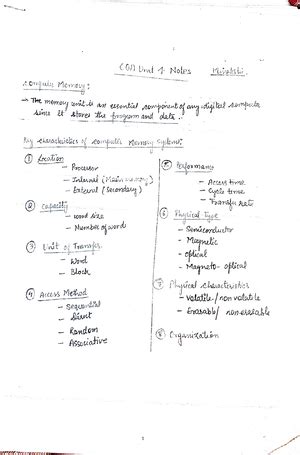 COA Unit 4 Notes
Computer Memory:
→ The memory unit is an essential component of any digital computer
since it stores the program and data..
Key characteristics of computer memory systems:
① Location
- Processor
- Internal (Main memory)
- External (Secondary)
② Capacity
- word size
- Number of word
③ Unit of Transfer
- Word
- Block
④ Access Method
- Sequential
- Direct
- Random
- Associative
⑤ Performance
- Access time
- Cycle time
- Transfer rate
⑥ Physical Type
- Semiconductor
- Magnetic
- optical
- Magneto-optical
⑦ Physical characteristics
- Volatile / non volatile
- Erasable / non erasable
⑧ Organization